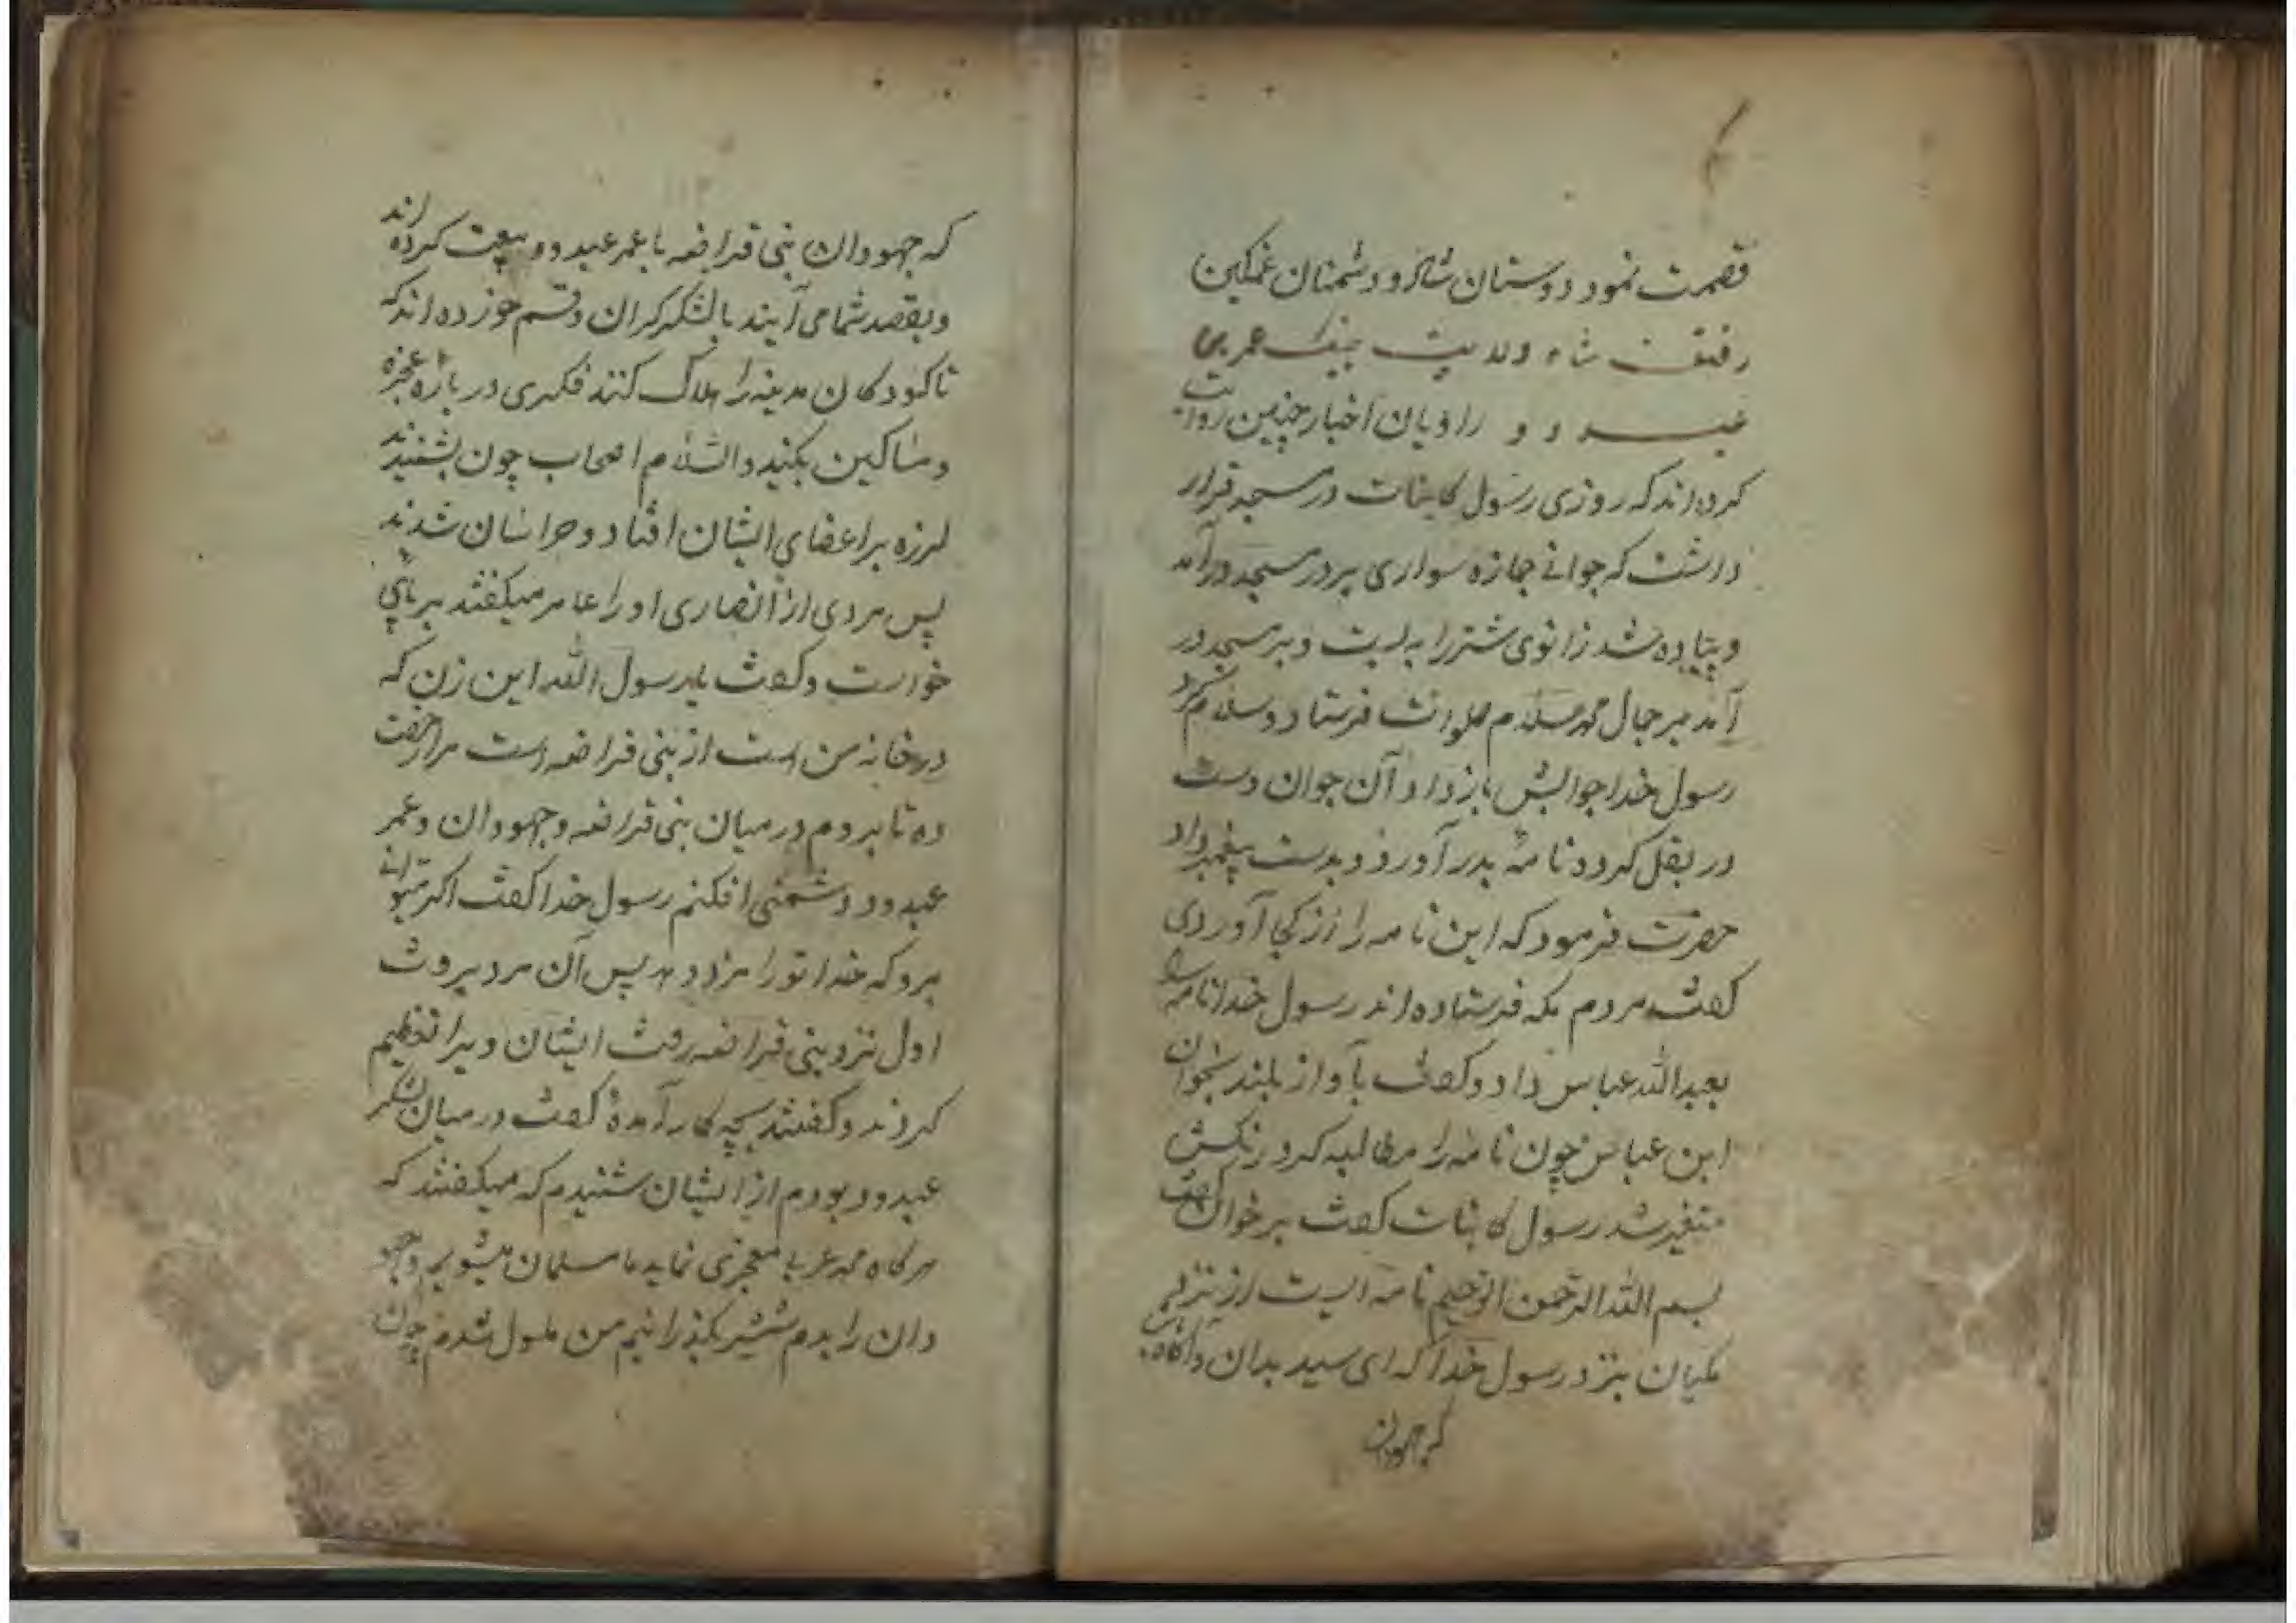 قصمت نمود دوستان شاد و دشمنان غمکین
رفتن شاه ولایت بجنک عمر بن
عبدود راویان اخبار چنین روایت
کرده اند که روزی رسول کاینات در مسجد قرار
داشت که جوانے جمازه سواری بر در مسجد در آمد
و پیاده شد زانوی شتر را به بست و بر مسجد در
آمد بر جمال محمد صلوات فرستاد و سلام کرد
رسول خدا جوابش باز داد آن جوان دست
در بغل کرد و نامۀ بدر آورد و بدست پیغمبر داد
حضرت فرمود که این نامه را از کجا آوردی
کفت مردم مکه فرستاده اند رسول خدا نامه را
بعبدالله عباس داد و کفت بآواز بلند بخوان
ابن عباس چون نامه را مطالبه کرد رنکش
متغیر شد رسول کاینات کفت بر خوان کفت
بسم الله الرحمن الرحیم نامه ایست از نزد
مکیان بنزد رسول خدا که ای سید بدان و آکاه باش
که جهودان
که جهودان بنی قراضه با عمر عبدود بیعت کرده اند
و بقصد شما می آیند با لشکر کران و قسم خورده اند که
تا کودکان مدینه را هلاک کنند فکری در بارۀ عجزه
و مساکین بکنید والسّلام اصحاب چون بشنیدند
لرزه بر اعضای ایشان افتاد و حراسان شدند
پس مردی از انصاری او را عامر میکفتند بر پای
خواست و کفت یا رسول الله این زن که
در خانه من است از بنی قراضه است مرا رخصت
ده تا بروم در میان بنی قراضه و جهودان و عمر
عبدود دشمنی افکنم رسول خدا کفت اکر میتوانے
برو که خدا تو را مزد دهد پس آن مرد بروت
اول نزد بنی قراضه رفت ایشان ویرا تعظیم
کردند و کفتند بچه کار آمدۀ کفت در میان لشکر
عبدود بودم از ایشان شنیدم که میکفتند که
هر کاه محمد عربے معجزی نماید ما مسلمان میشویم و جهو
دان را بدم شمشیر بکذرانیم من ملول شدم چون